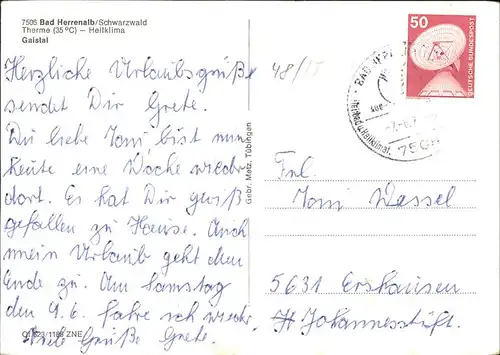 7506 Bad Herrenalb/Schwarzwald
Therme (35°C) – Heilklima
Gaistal
Herzliche Urlaubsgrüße
sendet Dir Grete.
Du liebe Toni, bist nun
heute eine Woche wieder
dort. Es hat Dir gewiß
gefallen zu Hause. Auch
mein Urlaub geht dem
Ende zu. Am Samstag
den 9.6. fahre ich wieder.
Viele Grüße Grete.
1188 ZNE
Gebr. Metz, Tübingen
48/15
50
DEUTSCHE BUNDESPOST
BAD HERR
Heilbad u. Heilklimat.
7506
Frl.
Toni Wessel
5631 Ershausen
Johannesstift.